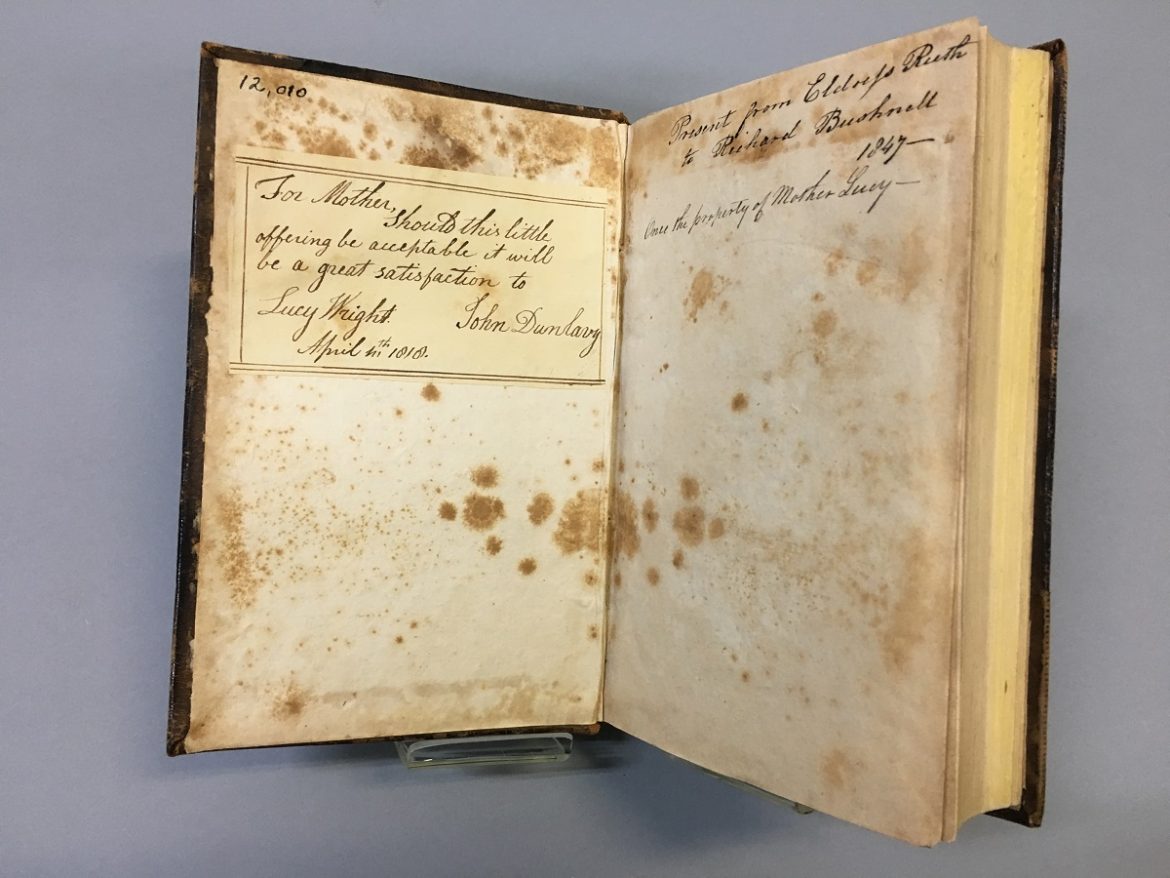 12,010
For Mother,
should this little
offering be acceptable it will
be a great satisfaction to
Lucy Wright. John Dunlavy
April 1818.
Present from Eldress Ruth
to Richard Bushnell
1847—
Once the property of Mother Lucy—